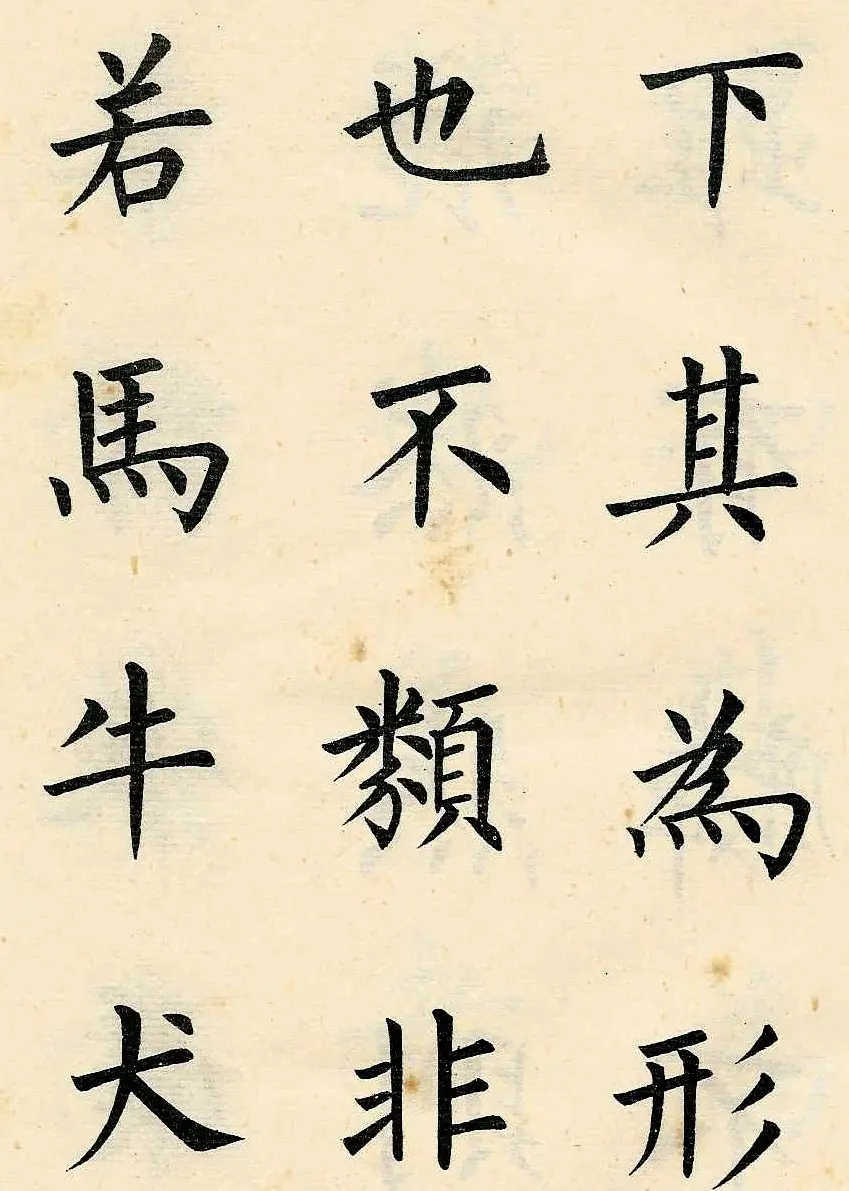 下其為形
也不類非
若馬牛犬